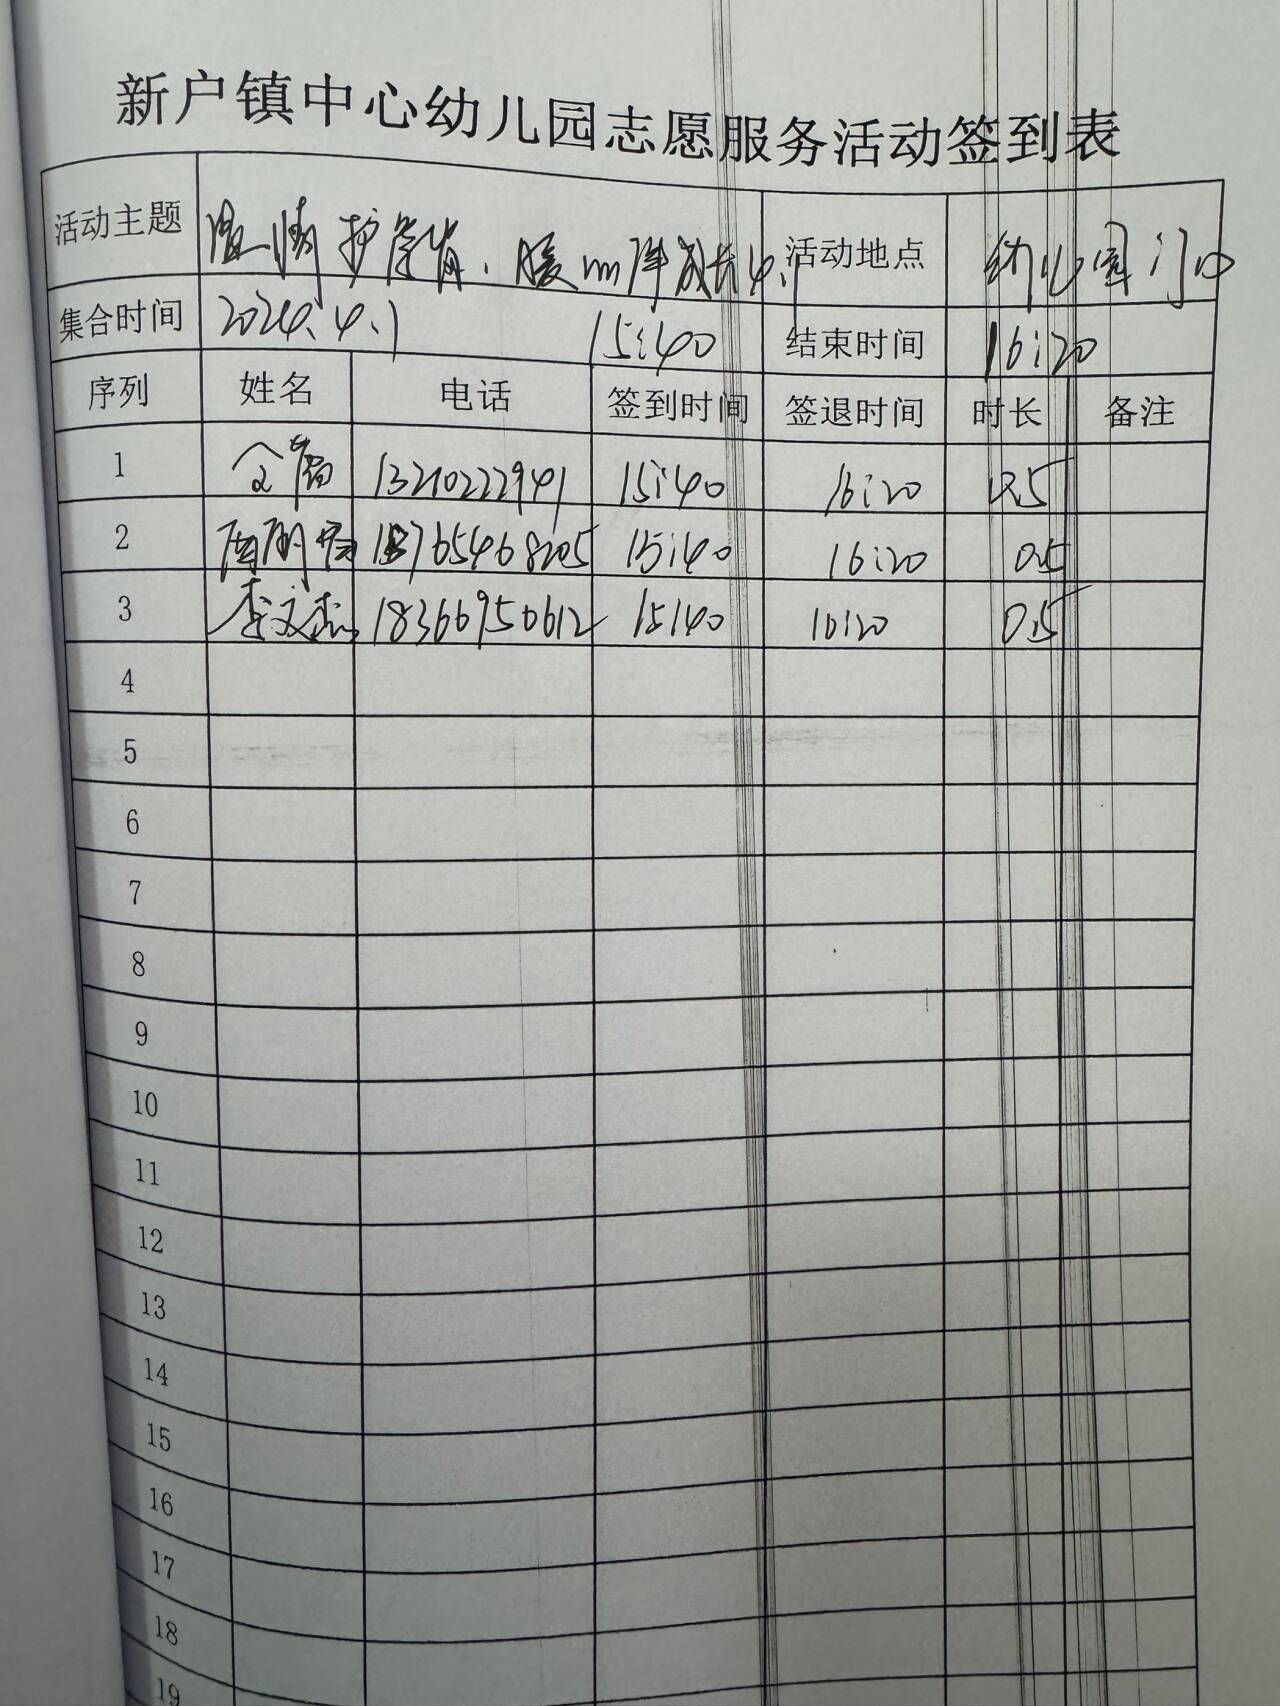 新户镇中心幼儿园志愿服务活动签到表
活动主题 温情护学岗、暖心伴成长4.1 活动地点 幼儿园门口
集合时间 2024.4.1 15:40 结束时间 16:20
序列 姓名 电话 签到时间 签退时间 时长 备注
1 13210222941 15:40 16:20 0.5
2 15765468205 15:40 16:20 0.5
3 李文杰 18366950612 15:40 16:20 0.5
4
5
6
7
8
9
10
11
12
13
14
15
16
17
18
19